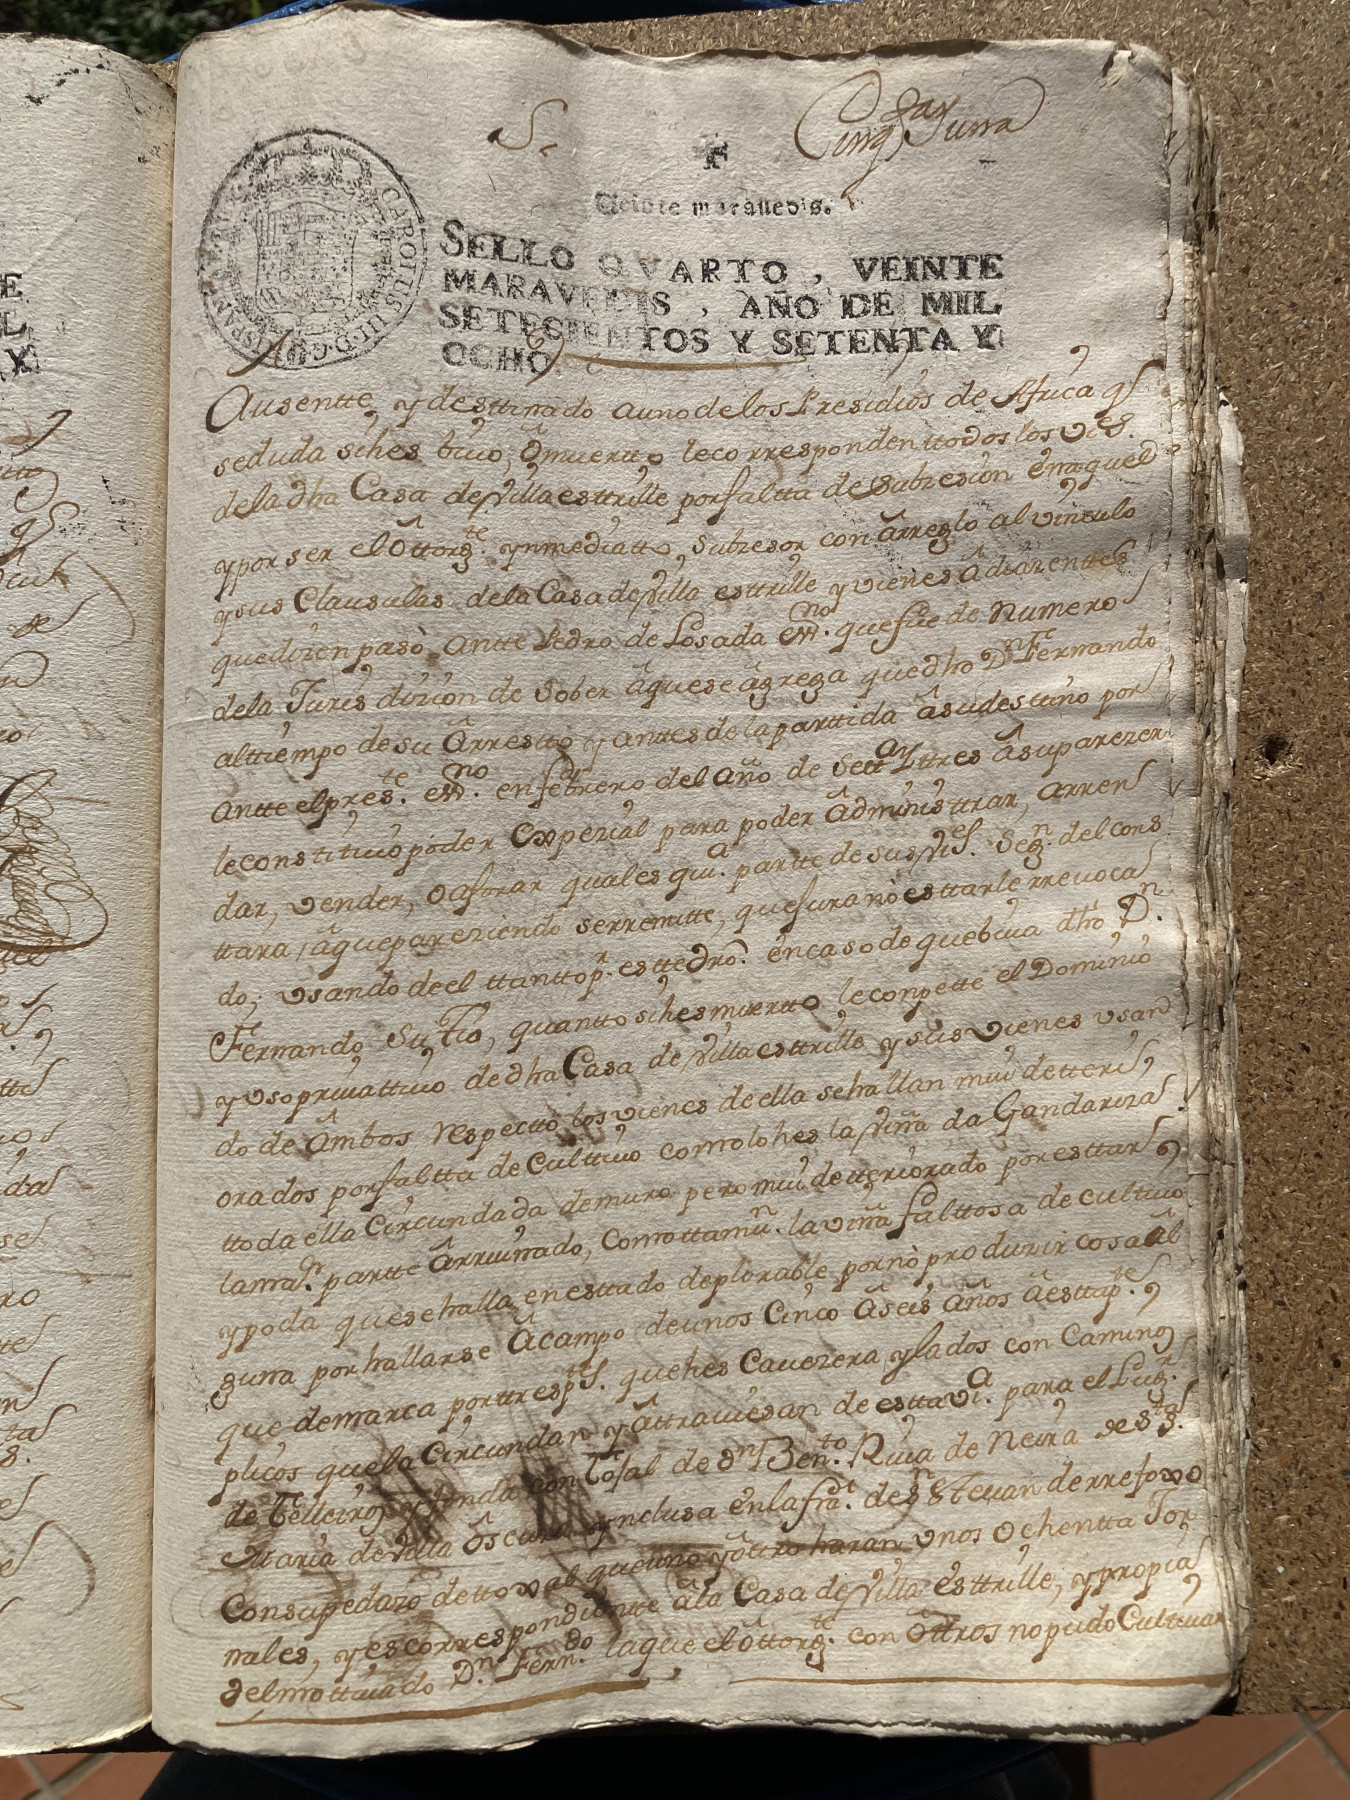 S.
Cinq.ta y una
Veinte maravedis.
SELLO QVARTO, VEINTE
MARAVEDIS, AÑO DE MIL
SETECIENTOS Y SETENTA Y
OCHO.
CAROLUS III D. G.
Ausentte, y desttinado auno delos Presidios de Africa q.e
seduda sihes bivo, ô muertto lecorrespondenttodos los vi.s
dela dha Casa de Villaesttrille porfaltta desubzesion ênaquel
ypor ser el Ottorg.te ynmediatto, subzesor con ârreglo al vinculo
y sus Clausulas dela Casa de Villa esttrille y vienes âdiarenttes
quedizen pasò antte Pedro de Losada Ess.no que fûe de Numero
dela Jurisdizion de Sober âquese âgrega que dho Dn Fernando
altiempo de su Ârrestto y antes dela parttida âsu desttino por
antte el pres.te ess.no en febrero del año de Sett.a y ttres âsuparezer
leconstituio poder expezial para poder âdministtrar, arren
dar, vender, o aforar quales qui.a partte de sus Vi.es Seg.n del cons
ttara, âque pareziendo serremitte, quefura nò esttarle rrevoca
do; vsando deel ttantto p.r estte dro. encaso de que biva dho D.n
Fernando su Tio, quantto sihes muertto leconpette el Dominio
y vso privattivo de dha Casa de Villaesttrille y sus vienes vsan
do de âmbos respectto los vienes de ella sehallan mui detteri
orados porfaltta de Culttivo como lo hes la Viña da Gandariza
ttoda ella Circundada de muro pero mui detteriorado por esttar
lama.r partte ârruinado, comottamv.n la viña falttosa de cultivo
y poda que sehalla en esttado deplorable por nò produzir cosa âl
guna por hallarse Âcampo deunos Cinco âseis años âestta p.te
que demarca por ttres p.tes que hes Cavezera, y lados con Camino
plicos que la Circundan y âttraviesan de estta vi.a para el Lug.r
de Telleiros y fonda con Tojal de dn Ben.to Ruia de Neira de S.ta
Maria de Villa ôscura ynclusa ênla fra. de Sn Stevan de rrefoxo
Consupedazo dettoxal queuno y ôttro haran vnos ochentta Jor
nales, y es correspondientte âla Casa de Villa esttrille, y propia
delmottivado Dn. Fern.do laque el ôttorg.te con ôttros no pudo Culttivar